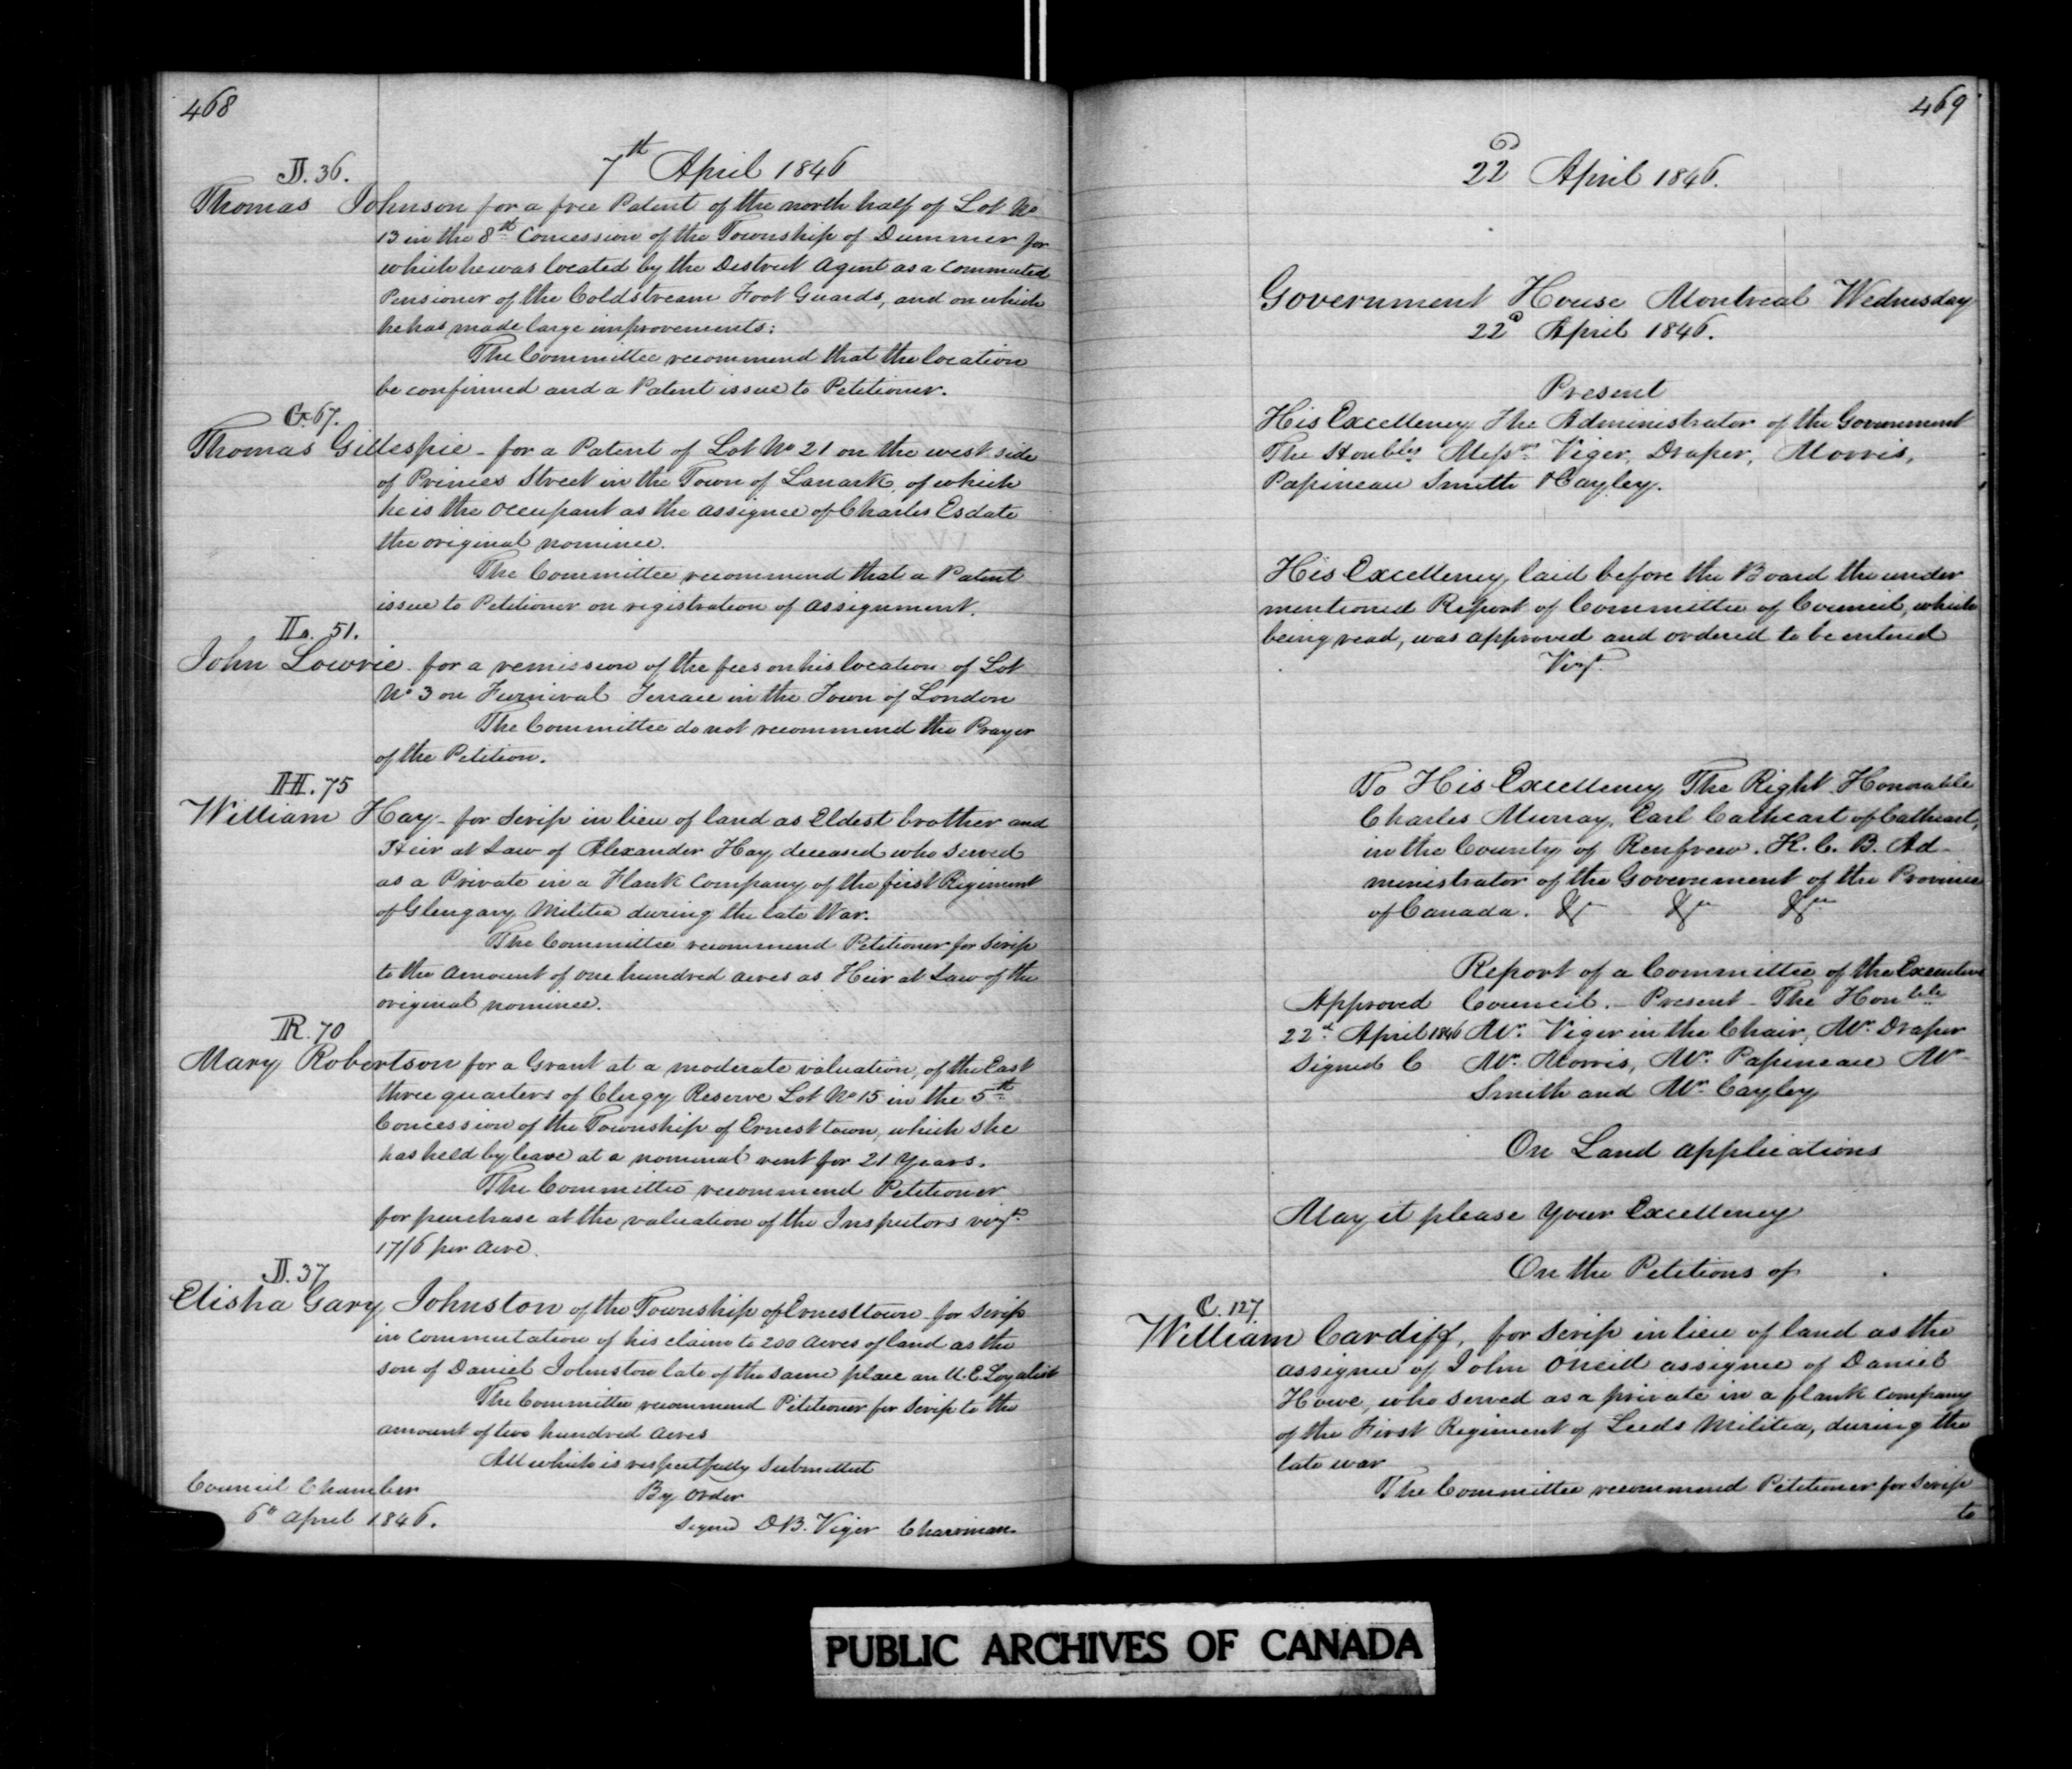 468
7th April 1846
J. 36.
Thomas Johnson for a free Patent of the north half of Lot No
13 in the 8th Concession of the Township of Dummer for
which he was located by the District Agent as a Commuted
Pensioner of the Coldstream Foot Guards, and on which
he has made large improvements:
The Committee recommend that the location
be confirmed and a Patent issue to Petitioner.
G. 67.
Thomas Gillespie - for a Patent of Lot No 21 on the west side
of Princes Street in the Town of Lanark, of which
he is the occupant as the assignee of Charles Esdate
the original nominee.
The Committee recommend that a Patent
issue to Petitioner on registration of assignment.
L. 51.
John Lowrie - for a remission of the fees on his location of Lot
No 3 on Furnival Terrace in the Town of London
The Committee do not recommend the Prayer
of the Petition.
H. 75
William Hay - for Scrip in lieu of land as Eldest brother and
Heir at Law of Alexander Hay, deceased who served
as a Private in a Flank Company of the first Regiment
of Glengary Militia during the late War.
The Committee recommend Petitioner for Scrip
to the amount of one hundred acres as Heir at Law of the
original nominee.
R. 70
Mary Robertson for a Grant at a moderate valuation, of the East
three quarters of Clergy Reserve Lot No 15 in the 5th
Concession of the Township of Ernest town, which she
has held by lease at a nominal rent for 21 Years.
The Committee recommend Petitioner
for purchase at the valuation of the Inspectors vizt
17/6 per acre.
J. 37
Elisha Gary Johnston of the Township of Ernesttown for Scrip
in commutation of his claim to 200 acres of land as the
son of Daniel Johnston late of the same place an U.E. Loyalist
The Committee recommend Petitioner for Scrip to the
amount of two hundred acres
All which is respectfully Submitted
Council Chamber
By order
6th April 1846.
Signed D.B. Viger Chairman.
469
22d April 1846.
Government House Montreal Wednesday
22d April 1846.
Present
His Excellency The Administrator of the Government
The Honbles Messrs Viger, Draper, Morris,
Papineau Smith & Cayley.
His Excellency, laid before the Board the under
mentioned Report of Committee of Council, which
being read, was approved and ordered to be entered
Vizt.
To His Excellency The Right Honorable
Charles Murray, Earl Cathcart of Cathcart,
in the County of Renfrew. K. C. B. Ad-
ministrator of the Government of the Province
of Canada. &c &c &c
Report of a Committee of the Executive
Approved Council. - Present - The Honble
22d April 1846 Mr. Viger in the Chair, Mr. Draper
Signed C Mr. Morris, Mr. Papineau Mr
Smith and Mr. Cayley
On Land applications
May it please Your Excellency
On the Petitions of
C. 127.
William Cardiff, for Scrip in lieu of land as the
assignee of John O'neill assignee of Daniel
Howe, who served as a private in a flank company
of the First Regiment of Leeds Militia, during the
late war
The Committee recommend Petitioner for Scrip
to
PUBLIC ARCHIVES OF CANADA